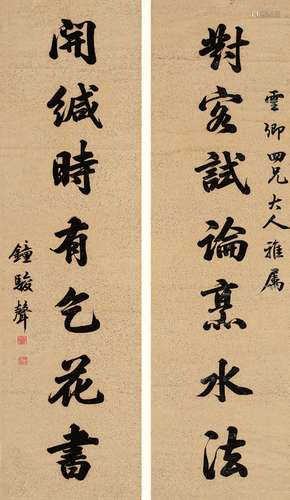 雲卿四兄大人雅属
對客試論烹水法
開緘時有乞花書
鐘駿聲